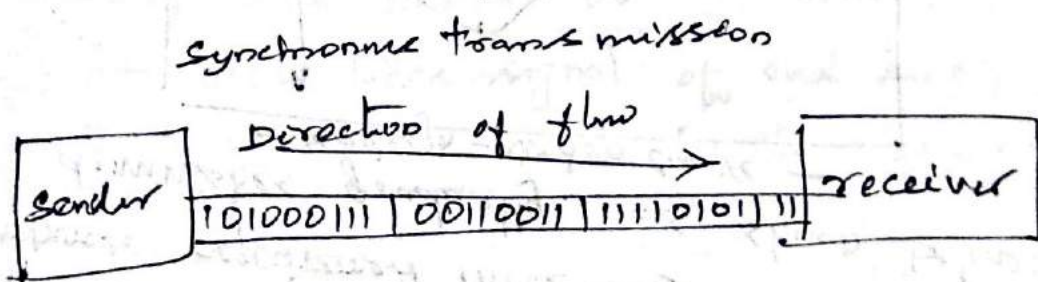 Synchronus transmission
Direction of flow
Sender 101000111 | 00110011 | 11110101 | 11 receiver